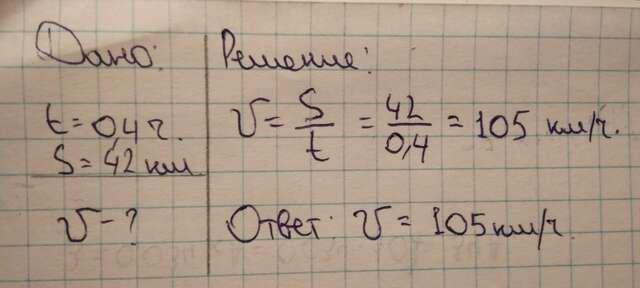 Дано:
t = 0,4 ч.
S = 42 км
υ - ?
Решение:
υ = S/t = 42/0,4 = 105 км/ч.
Ответ: υ = 105 км/ч.